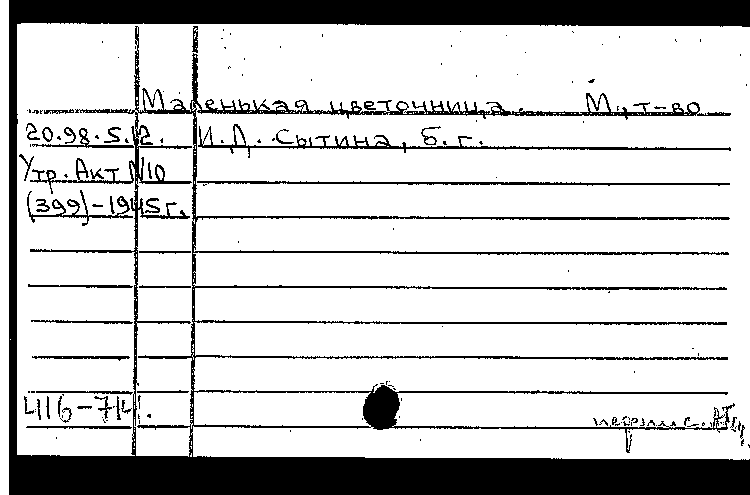 Маленькая цветочница. М., т-во
20.98.5.12. И.Д. Сытина, б. г.
Утр. Акт N10
(399)-1945 г.
4116-714.